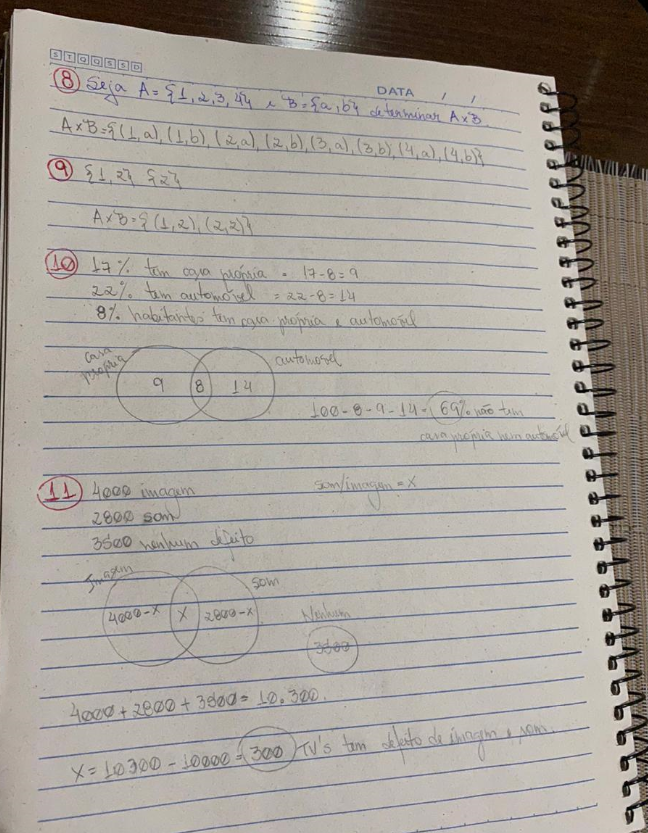 S T Q Q S S D
DATA / /
8 Seja A = {1, 2, 3, 4} e B = {a, b} determinar A x B.
A x B = {(1, a), (1, b), (2, a), (2, b), (3, a), (3, b), (4, a), (4, b)}
9 {1, 2} {2}
A x B = {(1, 2), (2, 2)}
10 17% tem casa própria = 17-8 = 9
22% tem automóvel = 22-8 = 14
8% habitantes tem casa própria e automóvel
casa própria
automóvel
9 8 14
100 - 8 - 9 - 14 = 69% não tem
casa própria nem automóvel
11 4000 imagem
som/imagem = x
2800 som
3500 nenhum defeito
Imagem
som
4000-x x 2800-x
Nenhum
3500
4000 + 2800 + 3500 = 10.300.
x = 10300 - 10000 = 300 TV's tem defeito de imagem e som.